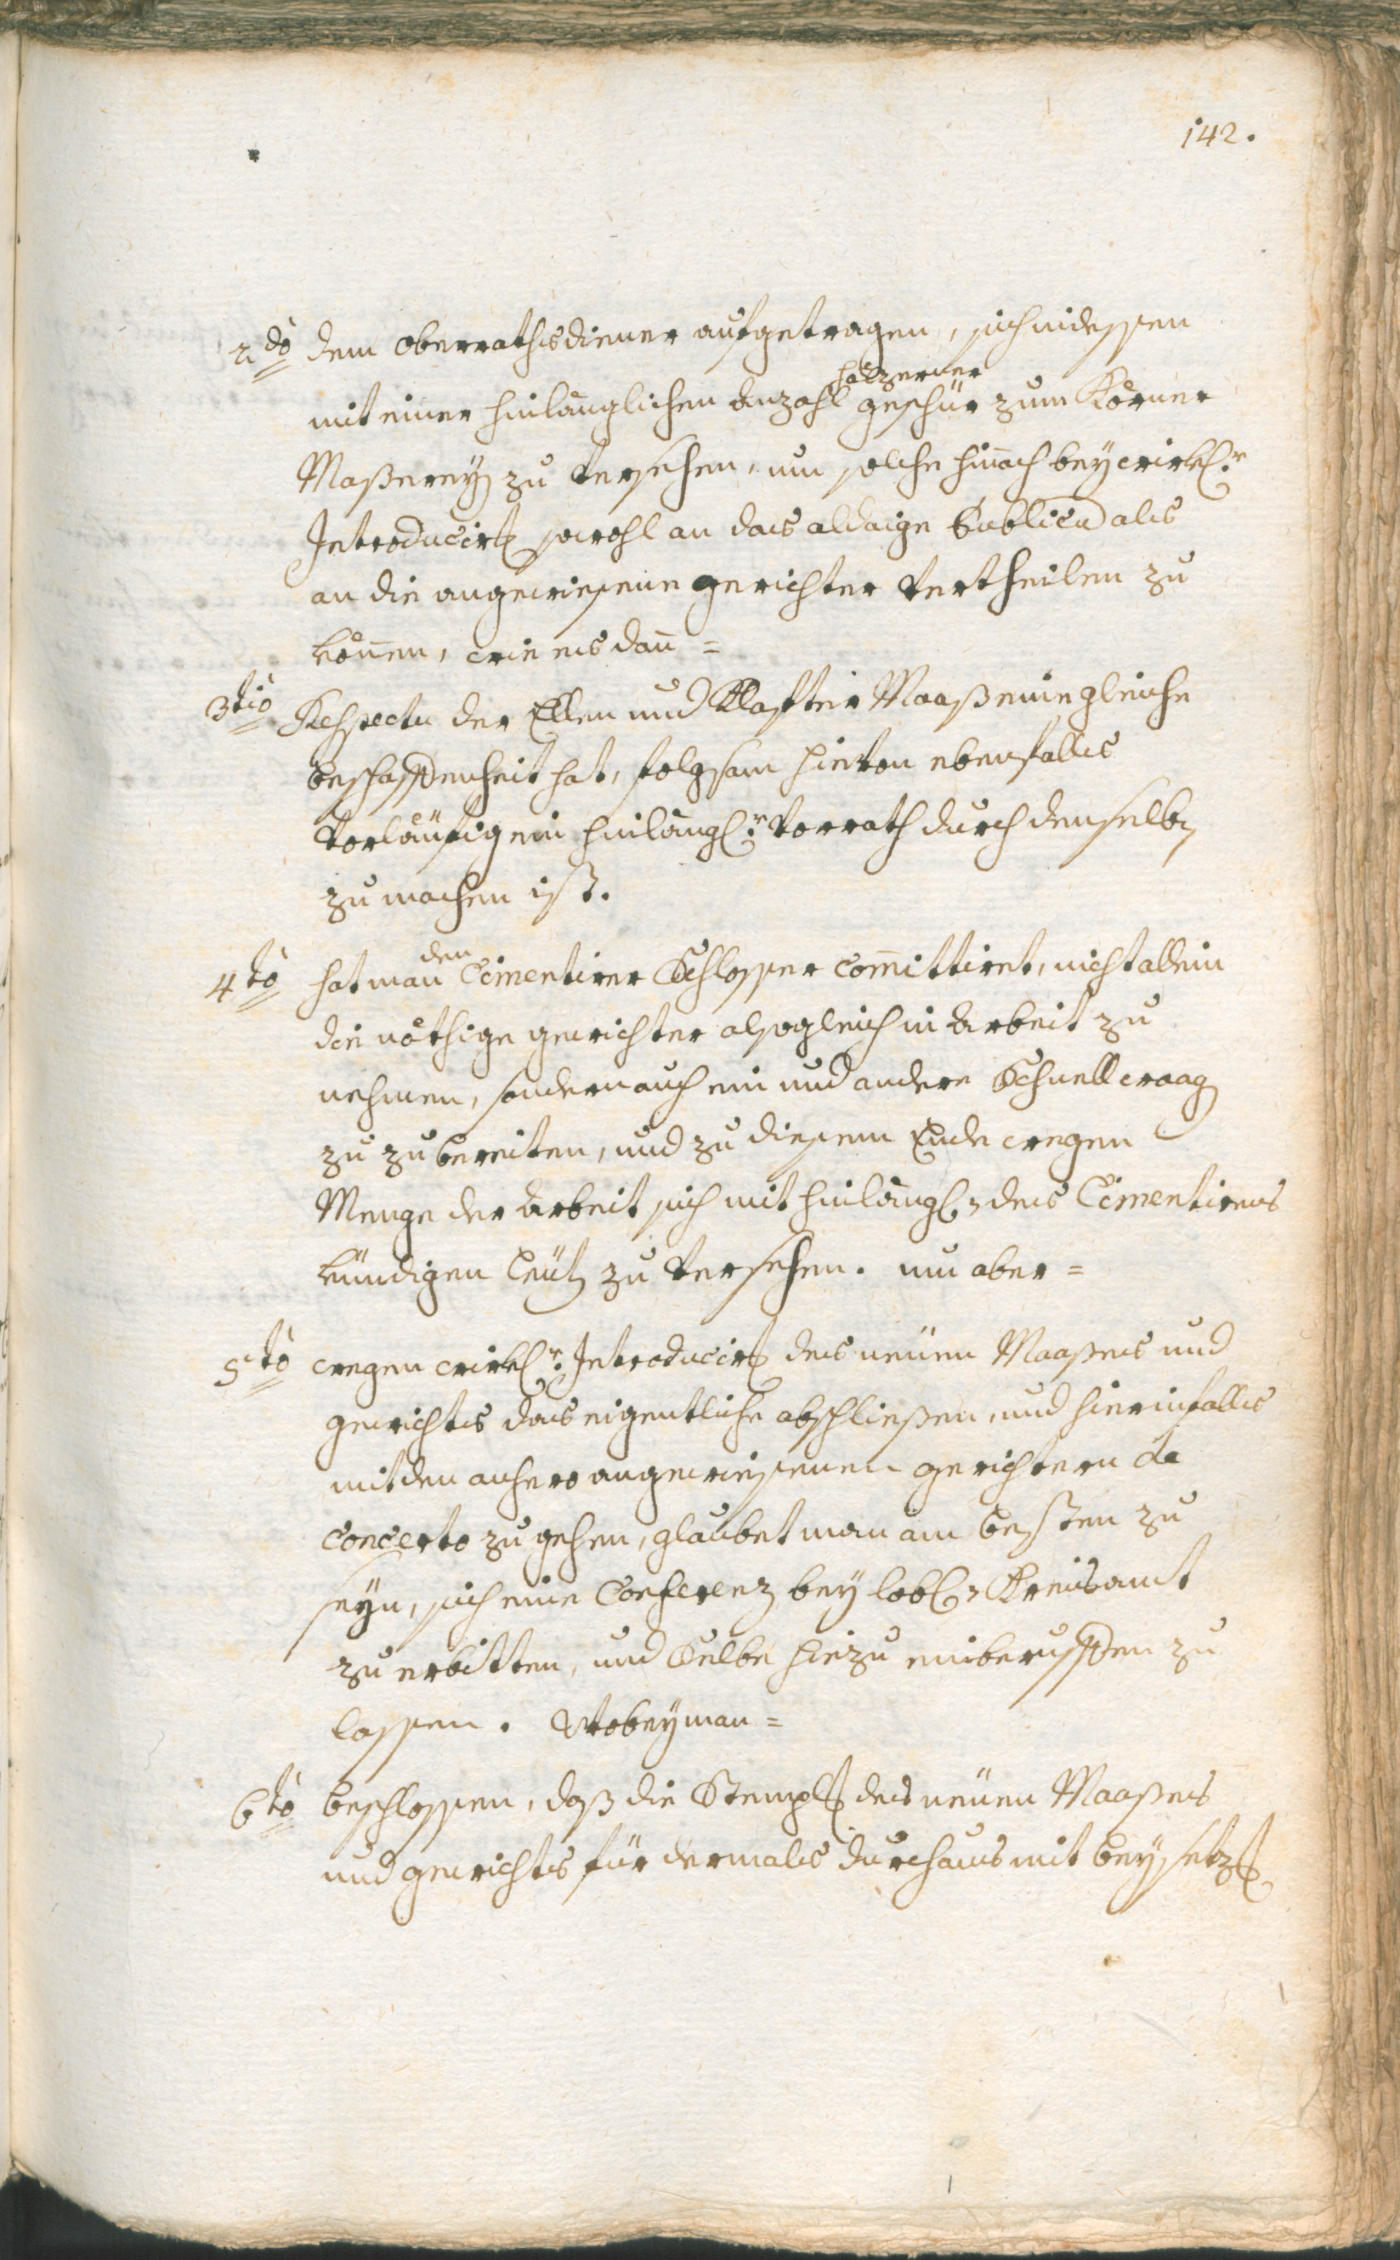 142.
2do dem oberrathsdiener aufgetragen, sich indessen
hölzerner
mit einer hinlänglichen Anzahl geschür zum Körner
Maßerey zu versehen, um solche hinach bey wirkl:r
Introducirg sowohl an das aldaige Publicu als
an die angewiesene gerichter vertheilen zu
können, wie es dan̄ =
3tio Respectu der Ellen und Klafter Maaß eine gleiche
beschaffenheit hat, folgsam hievon ebenfalls
vorläufig ein hinlängl:r vorrath durch denselbg
zu machen ist.
den
4to hat man Cimentirer Schlosser Com̄ittiret, nicht allein
die nöthige gewichter alsogleich in Arbeit zu
nehmen, sondern auch ein und andere Schnellwaag
zu zubereiten, und zu diesem Ende wegen
Menge der Arbeit sich mit hinlängl: des Cimentirens
kündigen Leütg zu versehen. um aber =
5to wegen wirkl:r Introducirg des neüen Maaßes und
gewichts das eigentliche abschließen, und hierinfalls
mit den anhero angewiesenen gerichtern de
concerto zu gehen, glaubet man am besten zu
seyn, sich eine Conferenz bey löbl: Kreisamt
zu erbitten, und Selbe hiezu einberuffen zu
lassen. Wobey man =
6to beschlossen, daß die Stemplg des neüen Maaßes
und gewichts für dermals durchaus mit beysetzg